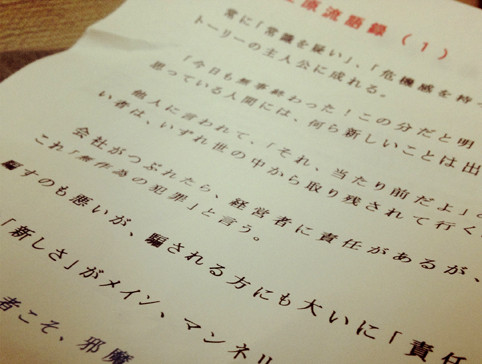 原流語録(1)
常に「常識を疑い」、「危機感を持っ
トーリーの主人公に成れる。
「今日も無事終わった!この分だと明
思っている人間には、何ら新しいことは出
他人に言われて、「それ、当たり前だよ」と
い者は、いずれ世の中から取り残されて行く
会社がつぶれたら、経営者に責任があるが、
これ「無作為の犯罪」と言う。
騙すのも悪いが、騙される方にも大いに「責任
「新しさ」がメイン、マンネリ
者こそ、邪魔